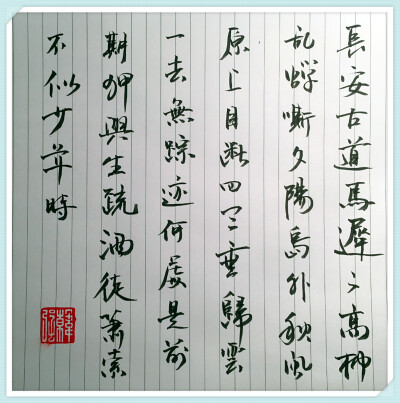 長安古道馬遲〻高柳
乱蟬嘶夕陽鳥外秋風
原上目断四天垂歸雲
一去無踪迹何處是前
期狎興生疏酒徒蕭索
不似少年時